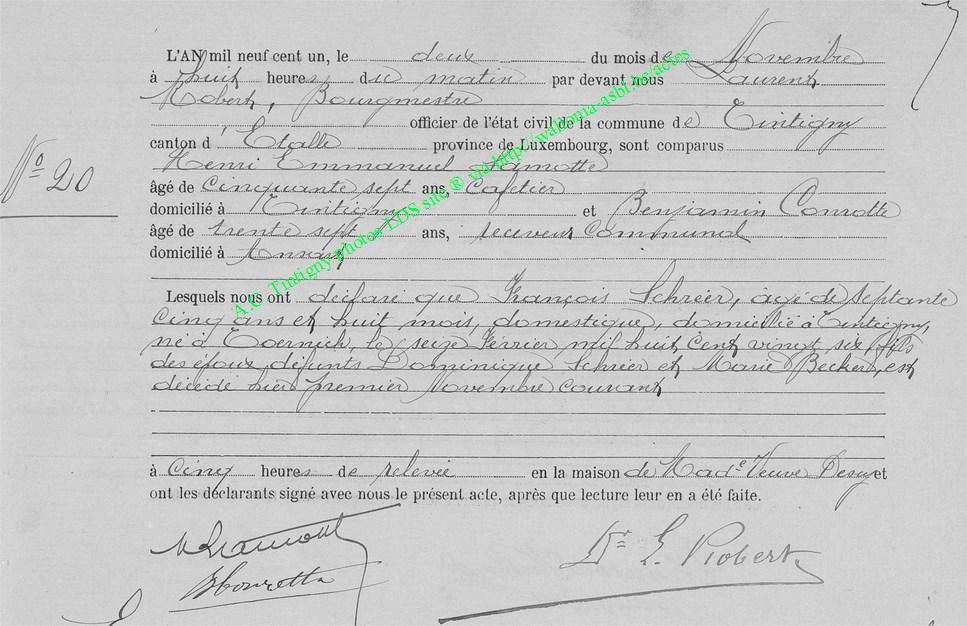 L'AN mil neuf cent un, le deux du mois de Novembre
à huit heures du matin par devant nous Laurent
Robert, Bourgmestre
officier de l'état civil de la commune de Tintigny
canton d'Etalle province de Luxembourg, sont comparus
Nº 20
Henri Emmanuel Lamotte
âgé de cinquante sept ans, Cafetier
domicilié à Tintigny et Benjamin Conrotte
âgé de trente sept ans, receveur communal
domicilié à Ansart
Lesquels nous ont déclaré que François Schréer, âgé de septante
cinq ans et huit mois, domestique, domicilié à Tintigny,
né à Toernich, le seize février mil huit cent vingt six, fils
des époux défunts Dominique Schréer et Marie Becker, est
décédé hier premier Novembre courant
à cinq heures de relevée en la maison de Made Veuve et
ont les déclarants signé avec nous le présent acte, après que lecture leur en a été faite.
Lamotte
Dr L. Robert
B Conrotte
A.C. Tintigny photos LDS site ® via http://wallonia-asbl.be/actes